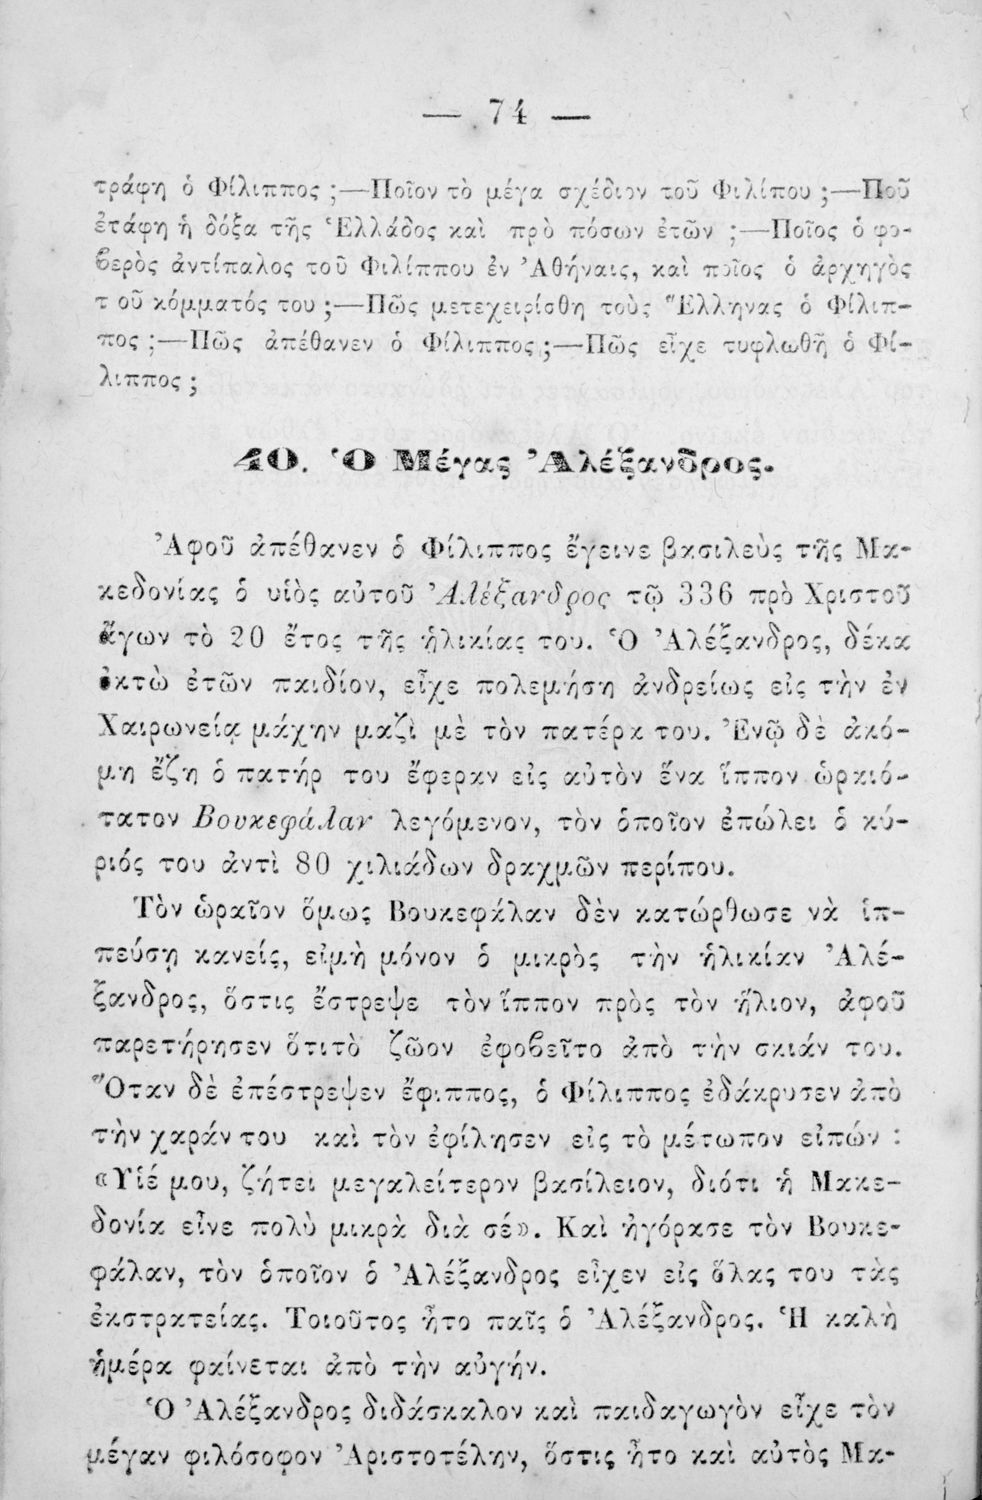 — 74 —
τράφη ὁ Φίλιππος ;—Ποῖον τὸ μέγα σχέδιον τοῦ Φιλίπου ;—Ποῦ
ἐτάφη ἡ δόξα τῆς Ἑλλάδος καὶ πρὸ πόσων ἐτῶν ;—Ποῖος ὁ φο-
βερὸς ἀντίπαλος τοῦ Φιλίππου ἐν Ἀθήναις, καὶ ποῖος ὁ ἀρχηγὸς
τ οῦ κόμματός του ;—Πῶς μετεχειρίσθη τοὺς Ἕλληνας ὁ Φίλιπ-
πος ;—Πῶς ἀπέθανεν ὁ Φίλιππος ;—Πῶς εἶχε τυφλωθῆ ὁ Φί-
λιππος ;
40. Ὁ Μέγας Ἀλέξανδρος.
Ἀφοῦ ἀπέθανεν ὁ Φίλιππος ἔγεινε βασιλεὺς τῆς Μα-
κεδονίας ὁ υἱὸς αὐτοῦ Ἀλέξανδρος τῷ 336 πρὸ Χριστοῦ
ἄγων τὸ 20 ἔτος τῆς ἡλικίας του. Ὁ Ἀλέξανδρος, δέκα
ὀκτὼ ἐτῶν παιδίον, εἶχε πολεμήση ἀνδρείως εἰς τὴν ἐν
Χαιρωνείᾳ μάχην μαζὶ μὲ τὸν πατέρα του. Ἐνῷ δὲ ἀκό-
μη ἔζη ὁ πατήρ του ἔφεραν εἰς αὐτὸν ἕνα ἵππον ὡραιό-
τατον Βουκεφάλαν λεγόμενον, τὸν ὁποῖον ἐπώλει ὁ κύ-
ριός του ἀντὶ 80 χιλιάδων δραχμῶν περίπου.
Τὸν ὡραῖον ὅμως Βουκεφάλαν δὲν κατώρθωσε νὰ ἱπ-
πεύσῃ κανείς, εἰμὴ μόνον ὁ μικρὸς τὴν ἡλικίαν Ἀλέ-
ξανδρος, ὅστις ἔστρεψε τὸν ἵππον πρὸς τὸν ἥλιον, ἀφοῦ
παρετήρησεν ὅτι τὸ ζῶον ἐφοβεῖτο ἀπὸ τὴν σκιάν του.
Ὅταν δὲ ἐπέστρεψεν ἔφιππος, ὁ Φίλιππος ἐδάκρυσεν ἀπὸ
τὴν χαράν του καὶ τὸν ἐφίλησεν εἰς τὸ μέτωπον εἰπών :
«Υἱέ μου, ζήτει μεγαλείτερον βασίλειον, διότι ἡ Μακε-
δονία εἶνε πολὺ μικρὰ διὰ σέ». Καὶ ἠγόρασε τὸν Βουκε-
φάλαν, τὸν ὁποῖον ὁ Ἀλέξανδρος εἶχεν εἰς ὅλας του τὰς
ἐκστρατείας. Τοιοῦτος ἦτο παῖς ὁ Ἀλέξανδρος. Ἡ καλὴ
ἡμέρα φαίνεται ἀπὸ τὴν αὐγήν.
Ὁ Ἀλέξανδρος διδάσκαλον καὶ παιδαγωγὸν εἶχε τὸν
μέγαν φιλόσοφον Ἀριστοτέλην, ὅστις ἦτο καὶ αὐτὸς Μα-